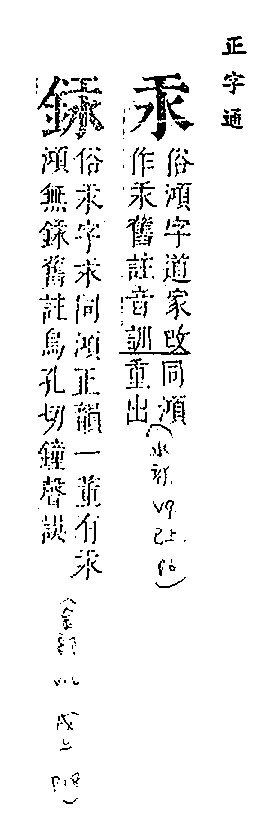 正字通
汞
俗澒字道家改同澒
作汞舊註音訓重出
(水部 V9 巳上 P6)
銾
俗汞字汞同澒正韻一董有汞
澒無銾舊註烏孔切鐘聲誤
(金部 戌上 P18)